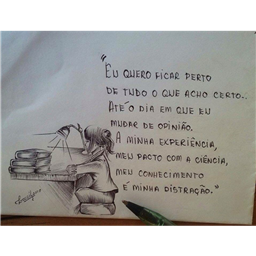 "EU QUERO FICAR PERTO
DE TUDO O QUE ACHO CERTO..
ATÉ O DIA EM QUE EU
MUDAR DE OPINIÃO.
A MINHA EXPERIÊNCIA,
MEU PACTO COM A CIÊNCIA,
MEU CONHECIMENTO
É MINHA DISTRAÇÃO."